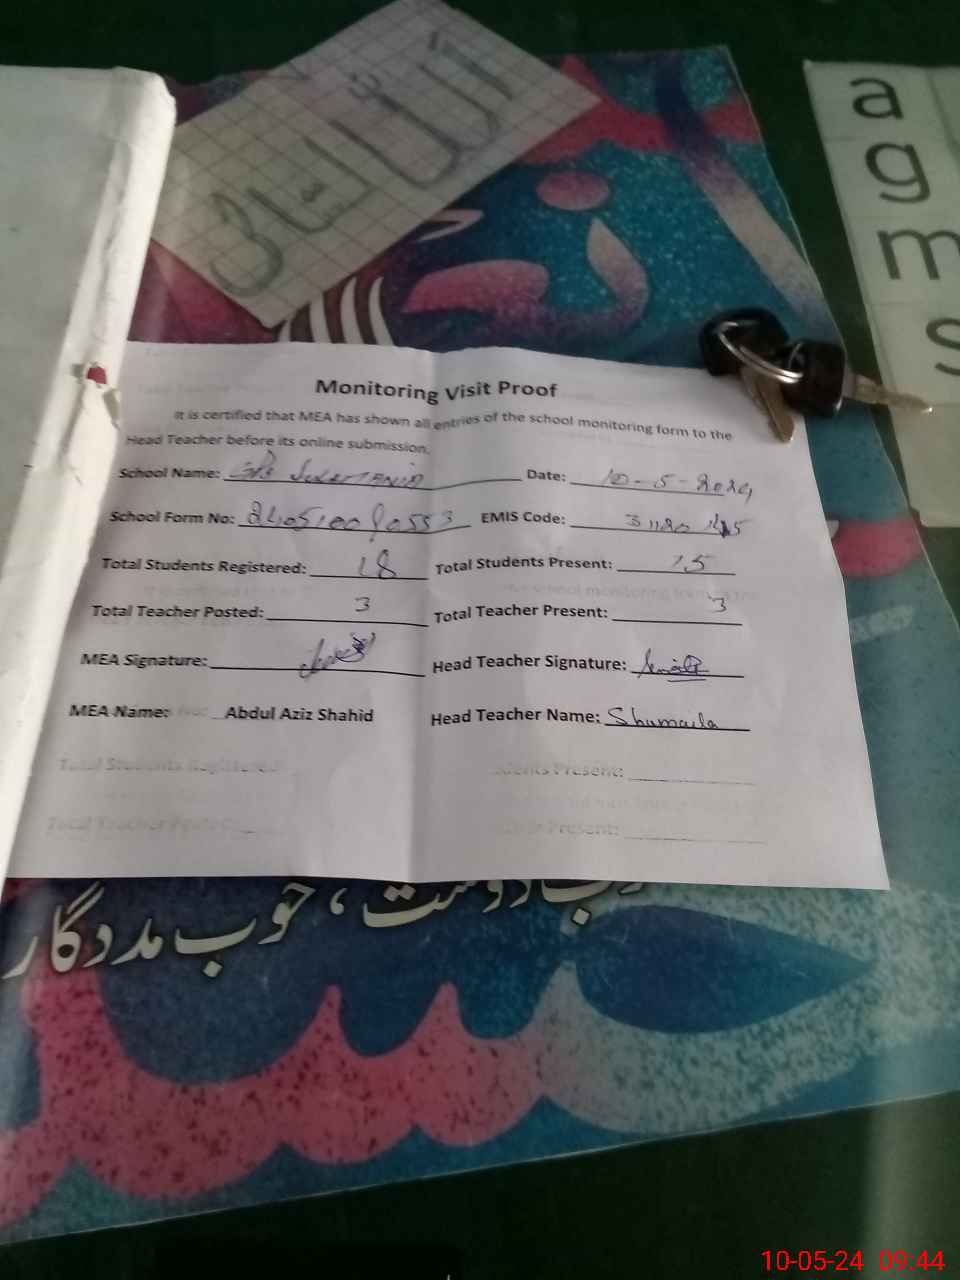 a
g
m
s
Monitoring Visit Proof
It is certified that MEA has shown all entries of the school monitoring form to the
Head Teacher before its online submission.
School Name: Date: 10-5-2024
School Form No: EMIS Code:
Total Students Registered: 18 Total Students Present: 15
Total Teacher Posted: 3 Total Teacher Present: 3
MEA Signature: Head Teacher Signature:
MEA Name: Abdul Aziz Shahid Head Teacher Name: Shumaila
Total Students Registered: dents Present:
Total Teacher Posted: Present:
دوست ، خوب مددگار
10-05-24 09:44